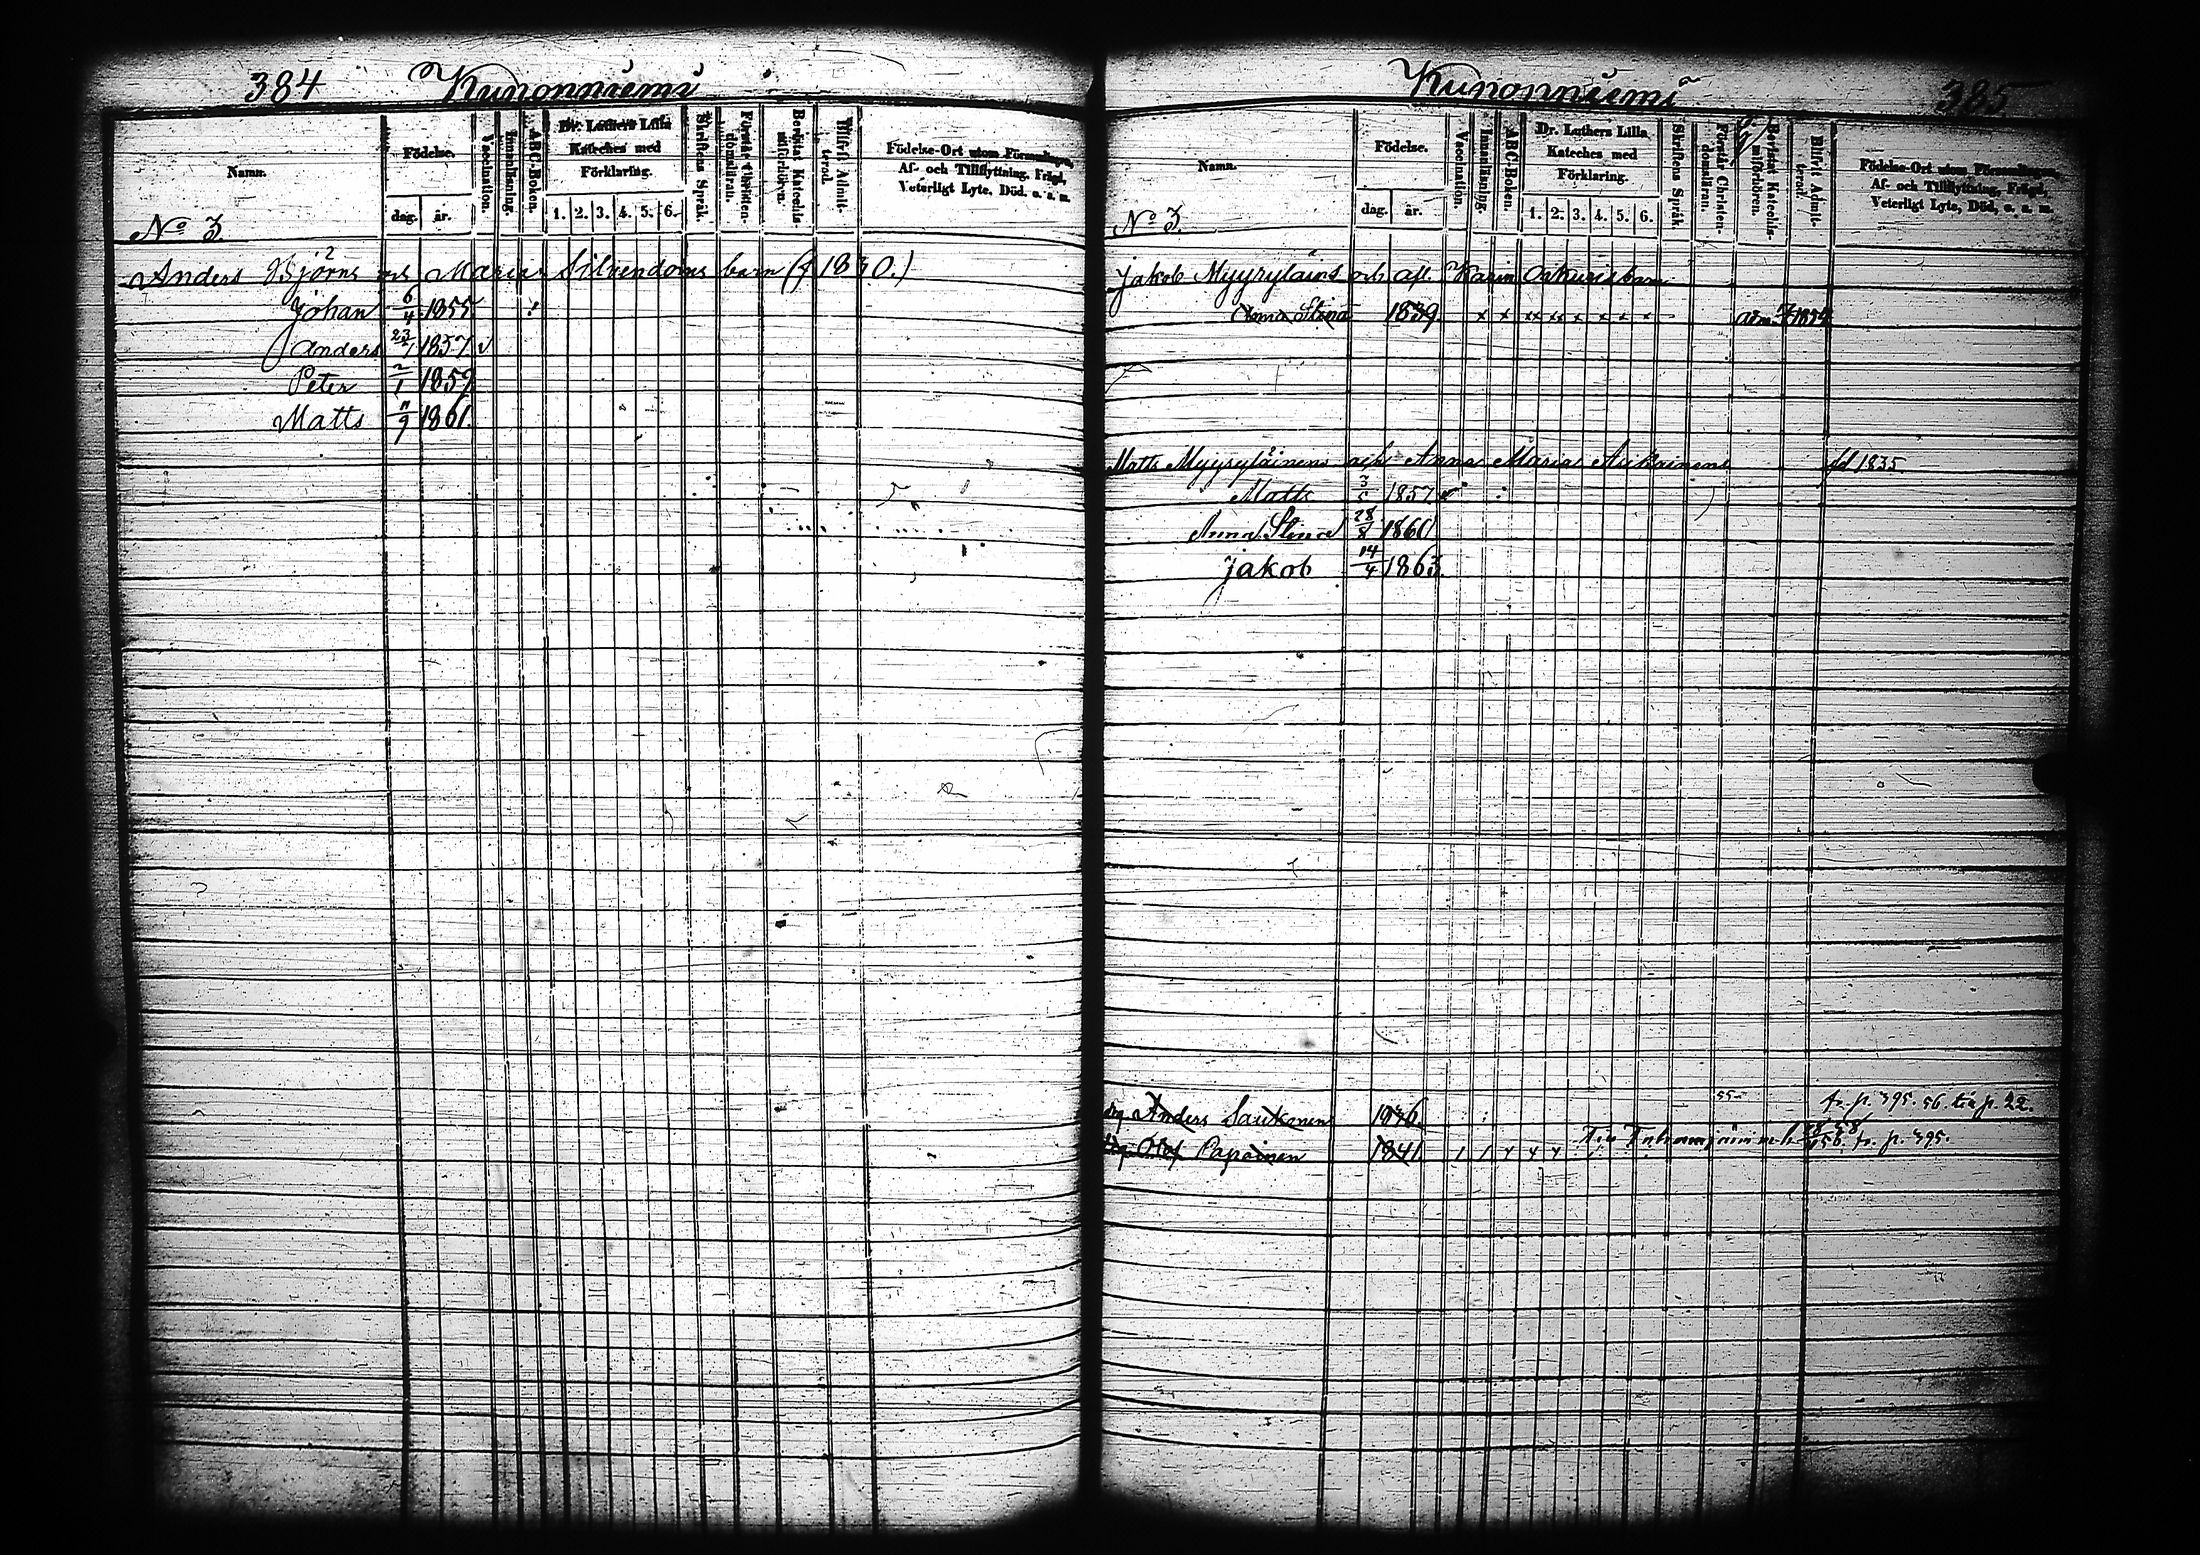 384 Kuronniemi
Namn.
Födelse.
dag. år.
Vaccination.
Innanläsning.
ABC-Boken.
Dr. Luthers Lilla
Kateches med
Förklaring.
1. 2. 3. 4. 5. 6.
Skriftens Språk.
Förstår Christen-
domsläran.
Bevistat Katechis-
miförhören.
Blifvit Admit-
terad.
Födelse-Ort utom Församlingen,
Af- och Tillflyttning, Frägd,
Veterligt Lyte, Död, o. s. m.
No 3.
Anders Björns och Maria Silvendoins barn (f 1830.)
Johan 6/4 1855
Anders 23/7 1857 v
Peter 2/1 1859
Matts 11/9 1861.
Kuronniemi 385
Namn.
Födelse.
dag. år.
Vaccination.
Innanläsning.
ABC-Boken.
Dr. Luthers Lilla
Kateches med
Förklaring.
1. 2. 3. 4. 5. 6.
Skriftens Språk.
Förstår Christen-
domsläran.
Bevistat Katechis-
miförhören.
Blifvit Admit-
terad.
Födelse-Ort utom Församlingen,
Af- och Tillflyttning, Frägd,
Veterligt Lyte, Död, o. s. m.
No 3.
Jakob Myyryläins och afl. Karin
Anna Stina 1839 x x xx xx x x x x
Matts Myyryläinens och Anna Maria fd 1835
Matts 3/5 1857
Anna Stina 28/8 1860
Jakob 14/4 1863.
55 fr. p. 395. 56. till p. 22.
dg Anders Saukonen
dg Olof Papainen 1841 fr. p. 395.